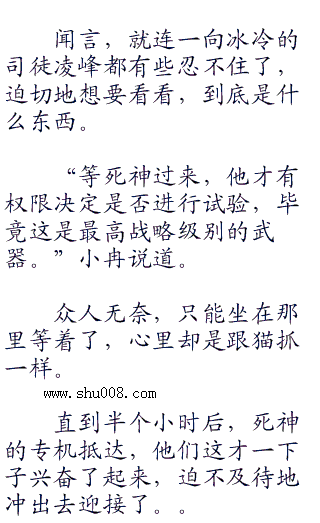 闻言，就连一向冰冷的
司徒凌峰都有些忍不住了，
迫切地想要看看，到底是什
么东西。
“等死神过来，他才有
权限决定是否进行试验，毕
竟这是最高战略级别的武
器。”小冉说道。
众人无奈，只能坐在那
里等着了，心里却是跟猫抓
一样。
www.shu008.com
直到半个小时后，死神
的专机抵达，他们这才一下
子兴奋了起来，迫不及待地
冲出去迎接了。。